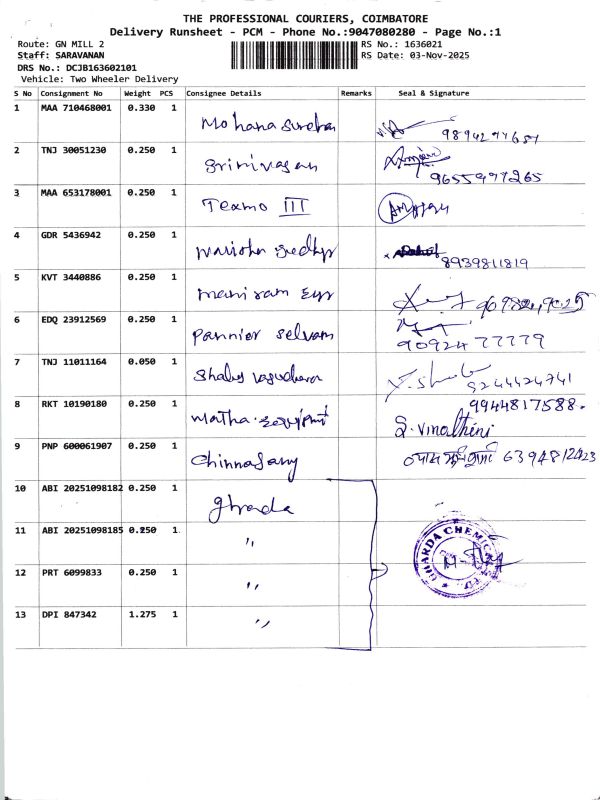 THE PROFESSIONAL COURIERS, COIMBATORE
Delivery Runsheet - PCM - Phone No.:9047080280 - Page No.:1
Route: GN MILL 2
RS No.: 1636021
Staff: SARAVANAN
RS Date: 03-Nov-2025
DRS No.: DCJB163602101
Vehicle: Two Wheeler Delivery
S No Consignment No Weight PCS Consignee Details Remarks Seal & Signature
1 MAA 710468001 0.330 1 Mohana
2 TNJ 30051230 0.250 1 Srinivasan 9655997265
3 MAA 653178001 0.250 1 Texmo III
4 GDR 5436942 0.250 1 8939811819
5 KVT 3440886 0.250 1 maniram
6 EDQ 23912569 0.250 1 Pannier Selvam 9092477779
7 TNJ 11011164 0.050 1 9244424741
8 RKT 10190180 0.250 1 Matha 9944817588.
S. Vinothini
9 PNP 600061907 0.250 1 Chinnasamy
10 ABI 20251098182 0.250 1 gharda
11 ABI 20251098185 0.250 1 "
12 PRT 6099833 0.250 1 "
13 DPI 847342 1.275 1 "
GHARDA CHEMICALS LTD.